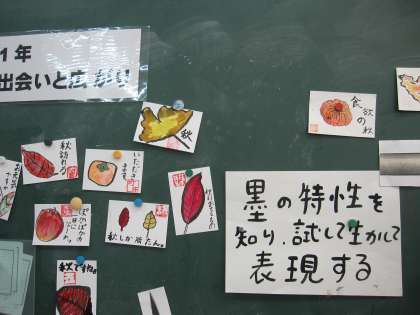 1年
出会いと広がり
秋
食欲の秋
秋訪れる
いただきます。
秋しか勝たん。
秋ですね。
墨の特性を
知り、試して生かして
表現する